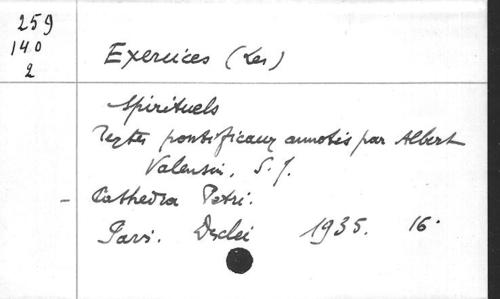 259
140
2
Exercices (Les)
Spirituels
Textes pontificaux annotés par Albert
Valensin, S. J.
Cathedra Petri.
Paris. Desclée 1935. 16°